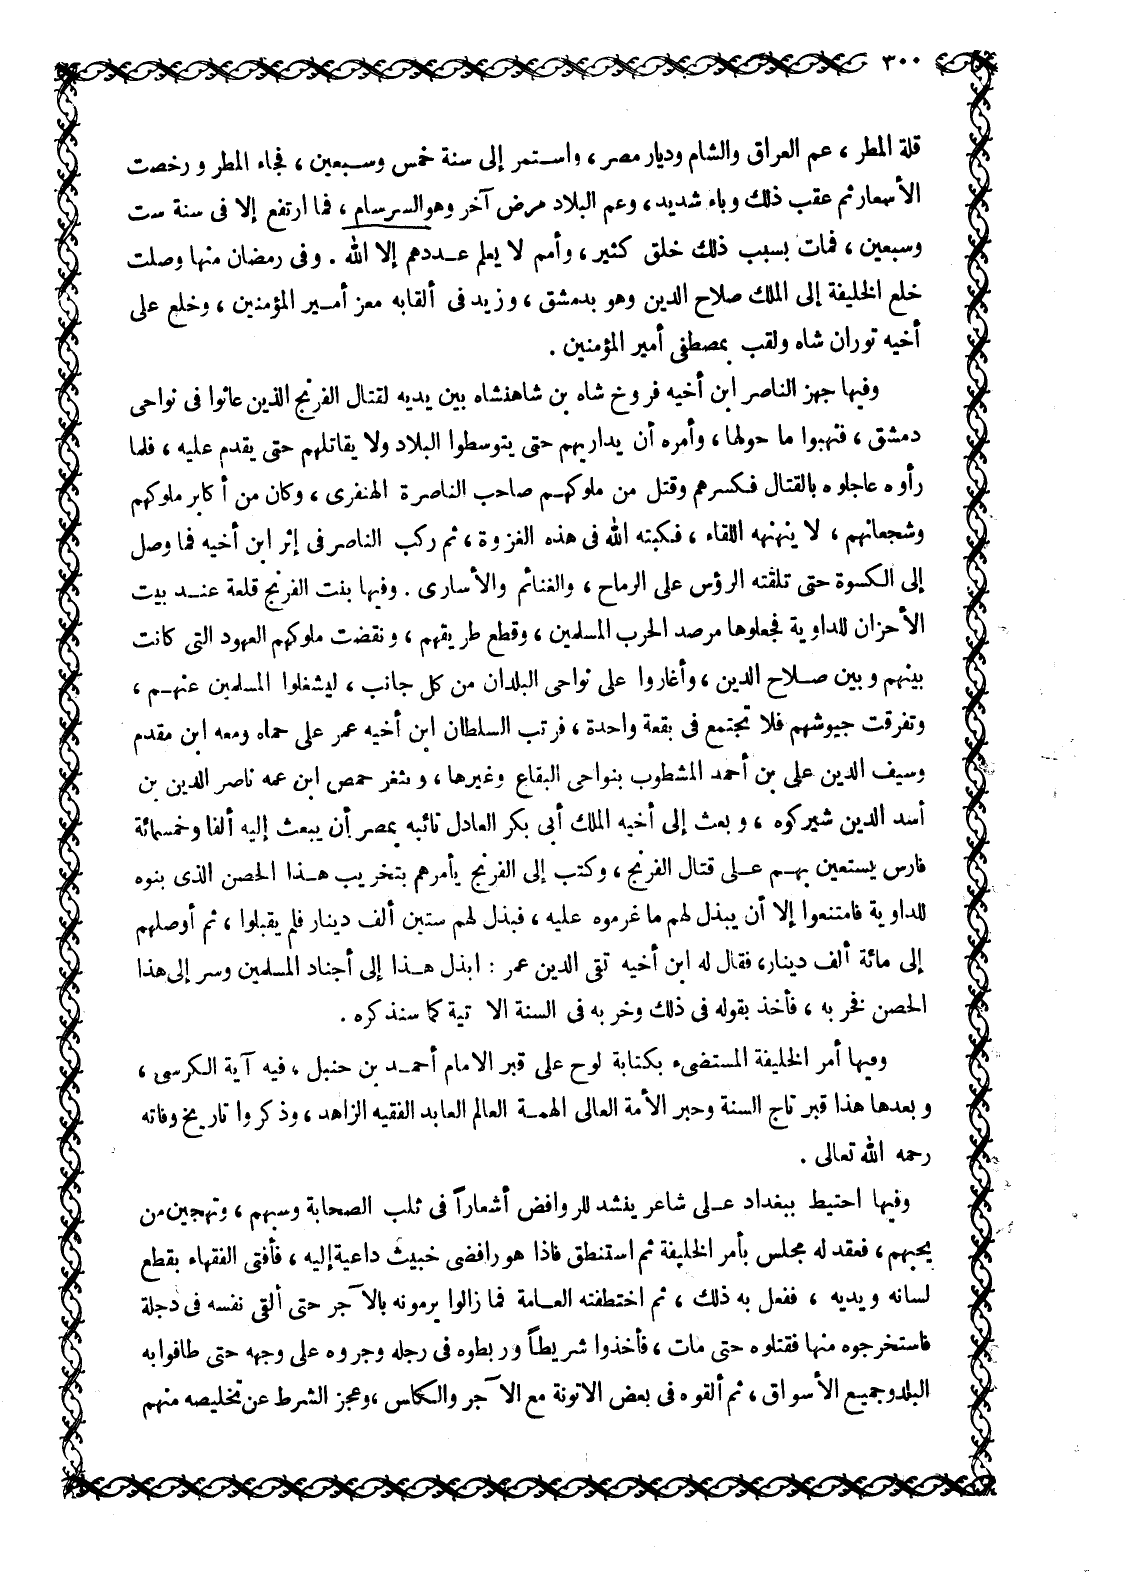 ٣٠٠
قلة المطر ، عم العراق والشام وديار مصر ، واستمر إلى سنة خمس وسبعين ، فجاء المطر ورخصت
الأسعار ثم عقب ذلك وباء شديد ، وعم البلاد مرض آخر وهو السرسام ، فما ارتفع إلا فى سنة ست
وسبعين ، فمات بسبب ذلك خلق كثير ، وأمم لا يعلم عددهم إلا الله . وفى رمضان منها وصلت
خلع الخليفة إلى الملك صلاح الدين وهو بدمشق ، وزيد فى ألقابه معز أمير المؤمنين ، وخلع على
أخيه توران شاه ولقب بمصطفى أمير المؤمنين .
وفيها جهز الناصر ابن أخيه فروخ شاه بن شاهنشاه بين يديه لقتال الفرنج الذين عاثوا فى نواحى
دمشق ، فنهبوا ما حولها ، وأمره أن يداريهم حتى يتوسطوا البلاد ولا يقاتلهم حتى يقدم عليه ، فلما
رأوه عاجلوه بالقتال فكسرهم وقتل من ملوكهم صاحب الناصرة الهنفرى ، وكان من أكابر ملوكهم
وشجعانهم ، لا ينهنهه اللقاء ، فكبته الله فى هذه الغزوة ، ثم ركب الناصر فى إثر ابن أخيه فما وصل
إلى الكسوة حتى تلقته الرؤس على الرماح ، والغنائم والأسارى . وفيها بنت الفرنج قلعة عند بيت
الأحزان للداوية فجعلوها مرصد الحرب المسلمين ، وقطع طريقهم ، ونقضت ملوكهم العهود التى كانت
بينهم وبين صلاح الدين ، وأغاروا على نواحى البلدان من كل جانب ، ليشغلوا المسلمين عنهم ،
وتفرقت جيوشهم فلا تجتمع فى بقعة واحدة ، فرتب السلطان ابن أخيه عمر على حماه ومعه ابن مقدم
وسيف الدين على بن أحمد المشطوب بنواحى البقاع وغيرها ، وبثغر حمص ابن عمه ناصر الدين بن
أسد الدين شيركوه ، وبعث إلى أخيه الملك أبى بكر العادل نائبه بمصر أن يبعث إليه ألفا وخمسمائة
فارس يستعين بهم على قتال الفرنج ، وكتب إلى الفرنج يأمرهم بتخريب هذا الحصن الذى بنوه
للداوية فامتنعوا إلا أن يبذل لهم ما غرموه عليه ، فبذل لهم ستين ألف دينار فلم يقبلوا ، ثم أوصلهم
إلى مائة ألف دينار، فقال له ابن أخيه تقى الدين عمر : ابذل هذا إلى أجناد المسلمين وسر إلى هذا
الحصن فخربه ، فأخذ بقوله فى ذلك وخربه فى السنة الا تية كما سنذكره .
وفيها أمر الخليفة المستضىء بكتابة لوح على قبر الامام أحمد بن حنبل ، فيه آية الكرسى ،
وبعدها هذا قبر تاج السنة وحبر الأمة العالى الهمة العالم العابد الفقيه الزاهد ، وذكروا تاريخ وفاته
رحمه الله تعالى .
وفيها احتيط ببغداد على شاعر ينشد للروافض أشعاراً فى ثلب الصحابة وسبهم ، وتهجين من
يحبهم ، فعقد له مجلس بأمر الخليفة ثم استنطق فاذا هو رافضى خبيث داعية إليه ، فأفتى الفقهاء بقطع
لسانه ويديه ، ففعل به ذلك ، ثم اختطفته العامة فما زالوا يرمونه بالآجر حتى ألقى نفسه فى دجلة
فاستخرجوه منها فقتلوه حتى مات ، فأخذوا شريطاً وربطوه فى رجله وجروه على وجهه حتى طافوا به
البلد وجميع الأسواق ، ثم ألقوه فى بعض الاتونة مع الآجر والكلس ، وعجز الشرط عن تخليصه منهم